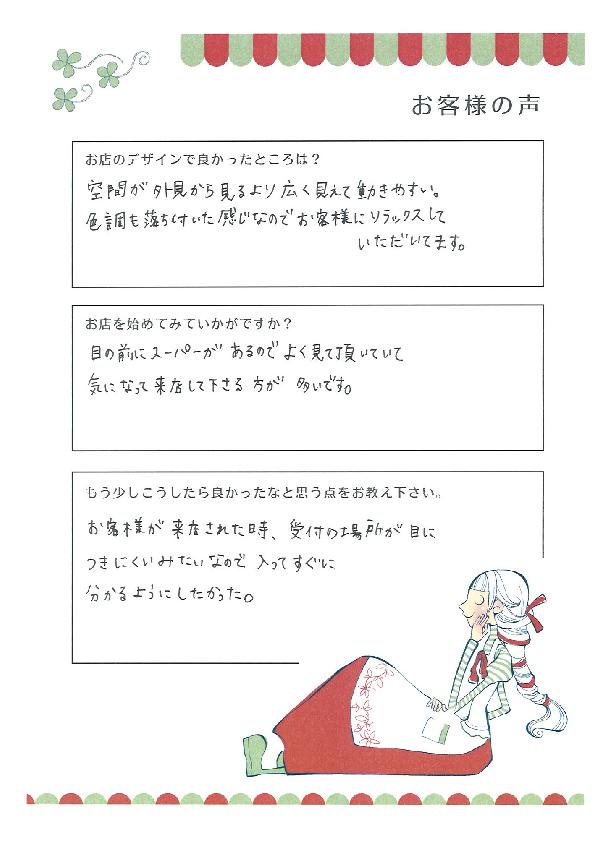 お客様の声
お店のデザインで良かったところは？
空間が外見から見るより広く見えて動きやすい。
色調も落ち付いた感じなのでお客様にリラックスして
いただいてます。
お店を始めてみていかがですか？
目の前にスーパーがあるのでよく見て頂いていて
気になって来店して下さる方が多いです。
もう少しこうしたら良かったなと思う点をお教え下さい。
お客様が来店された時、受付の場所が目に
つきにくいみたいなので入ってすぐに
分かるようにしたかった。